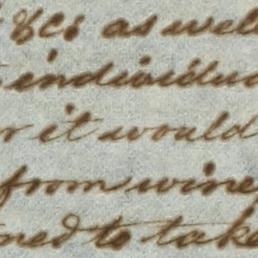 &c; as well
individua
r it would
from wine
ned to take